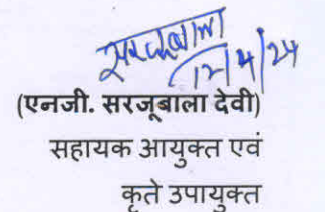 सरजूबाला
12/4/24
(एनजी. सरजूबाला देवी)
सहायक आयुक्त एवं
कृते उपायुक्त